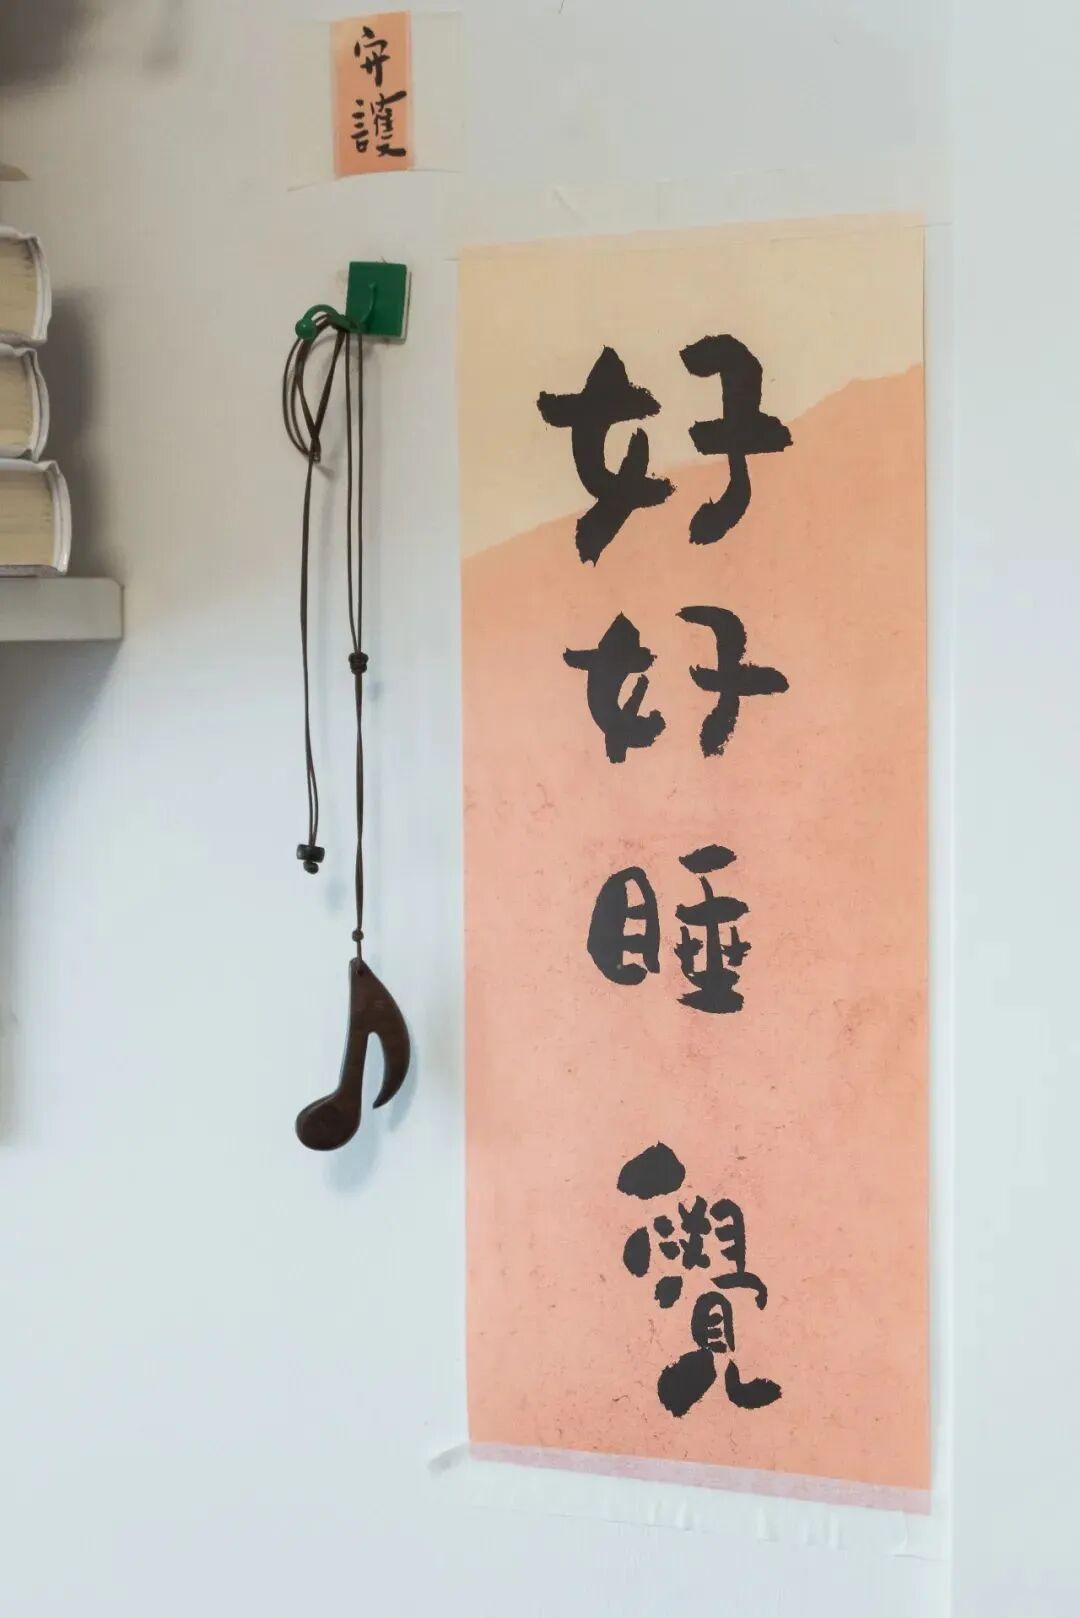 守護
好好睡覺